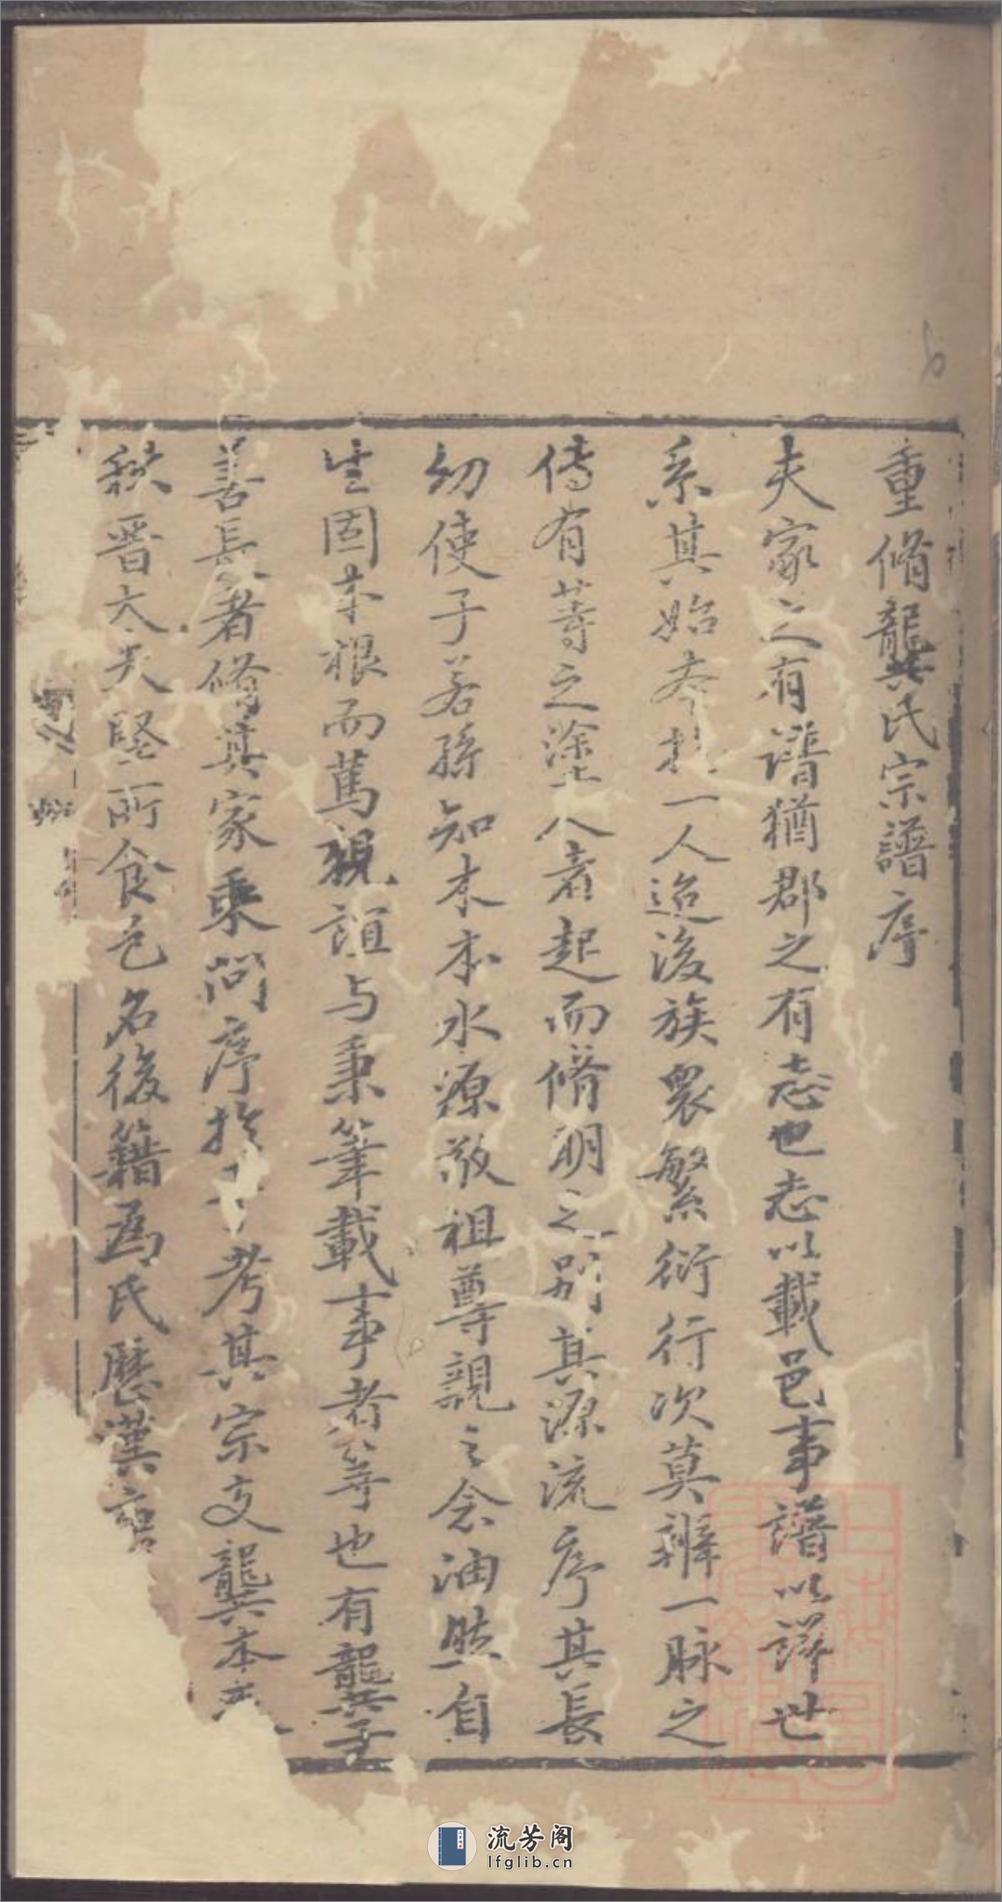 重脩龔氏宗譜序
夫家之有譜猶郡之有志也志以載邑事譜以詳世
系其始本於一人迨後族衆繁衍行次莫辨一脉之
傳有等之塗人者起而脩明之別其源流序其長
幼使子若孫知木本水源敬祖尊親之念油然自
生固本根而篤親誼与秉筆載事者等也有龔子
善長者脩其家乘問序於予考其宗支龔本
秩晋大夫堅所食邑名後籍為氏歷漢
流芳阁
lfglib.cn